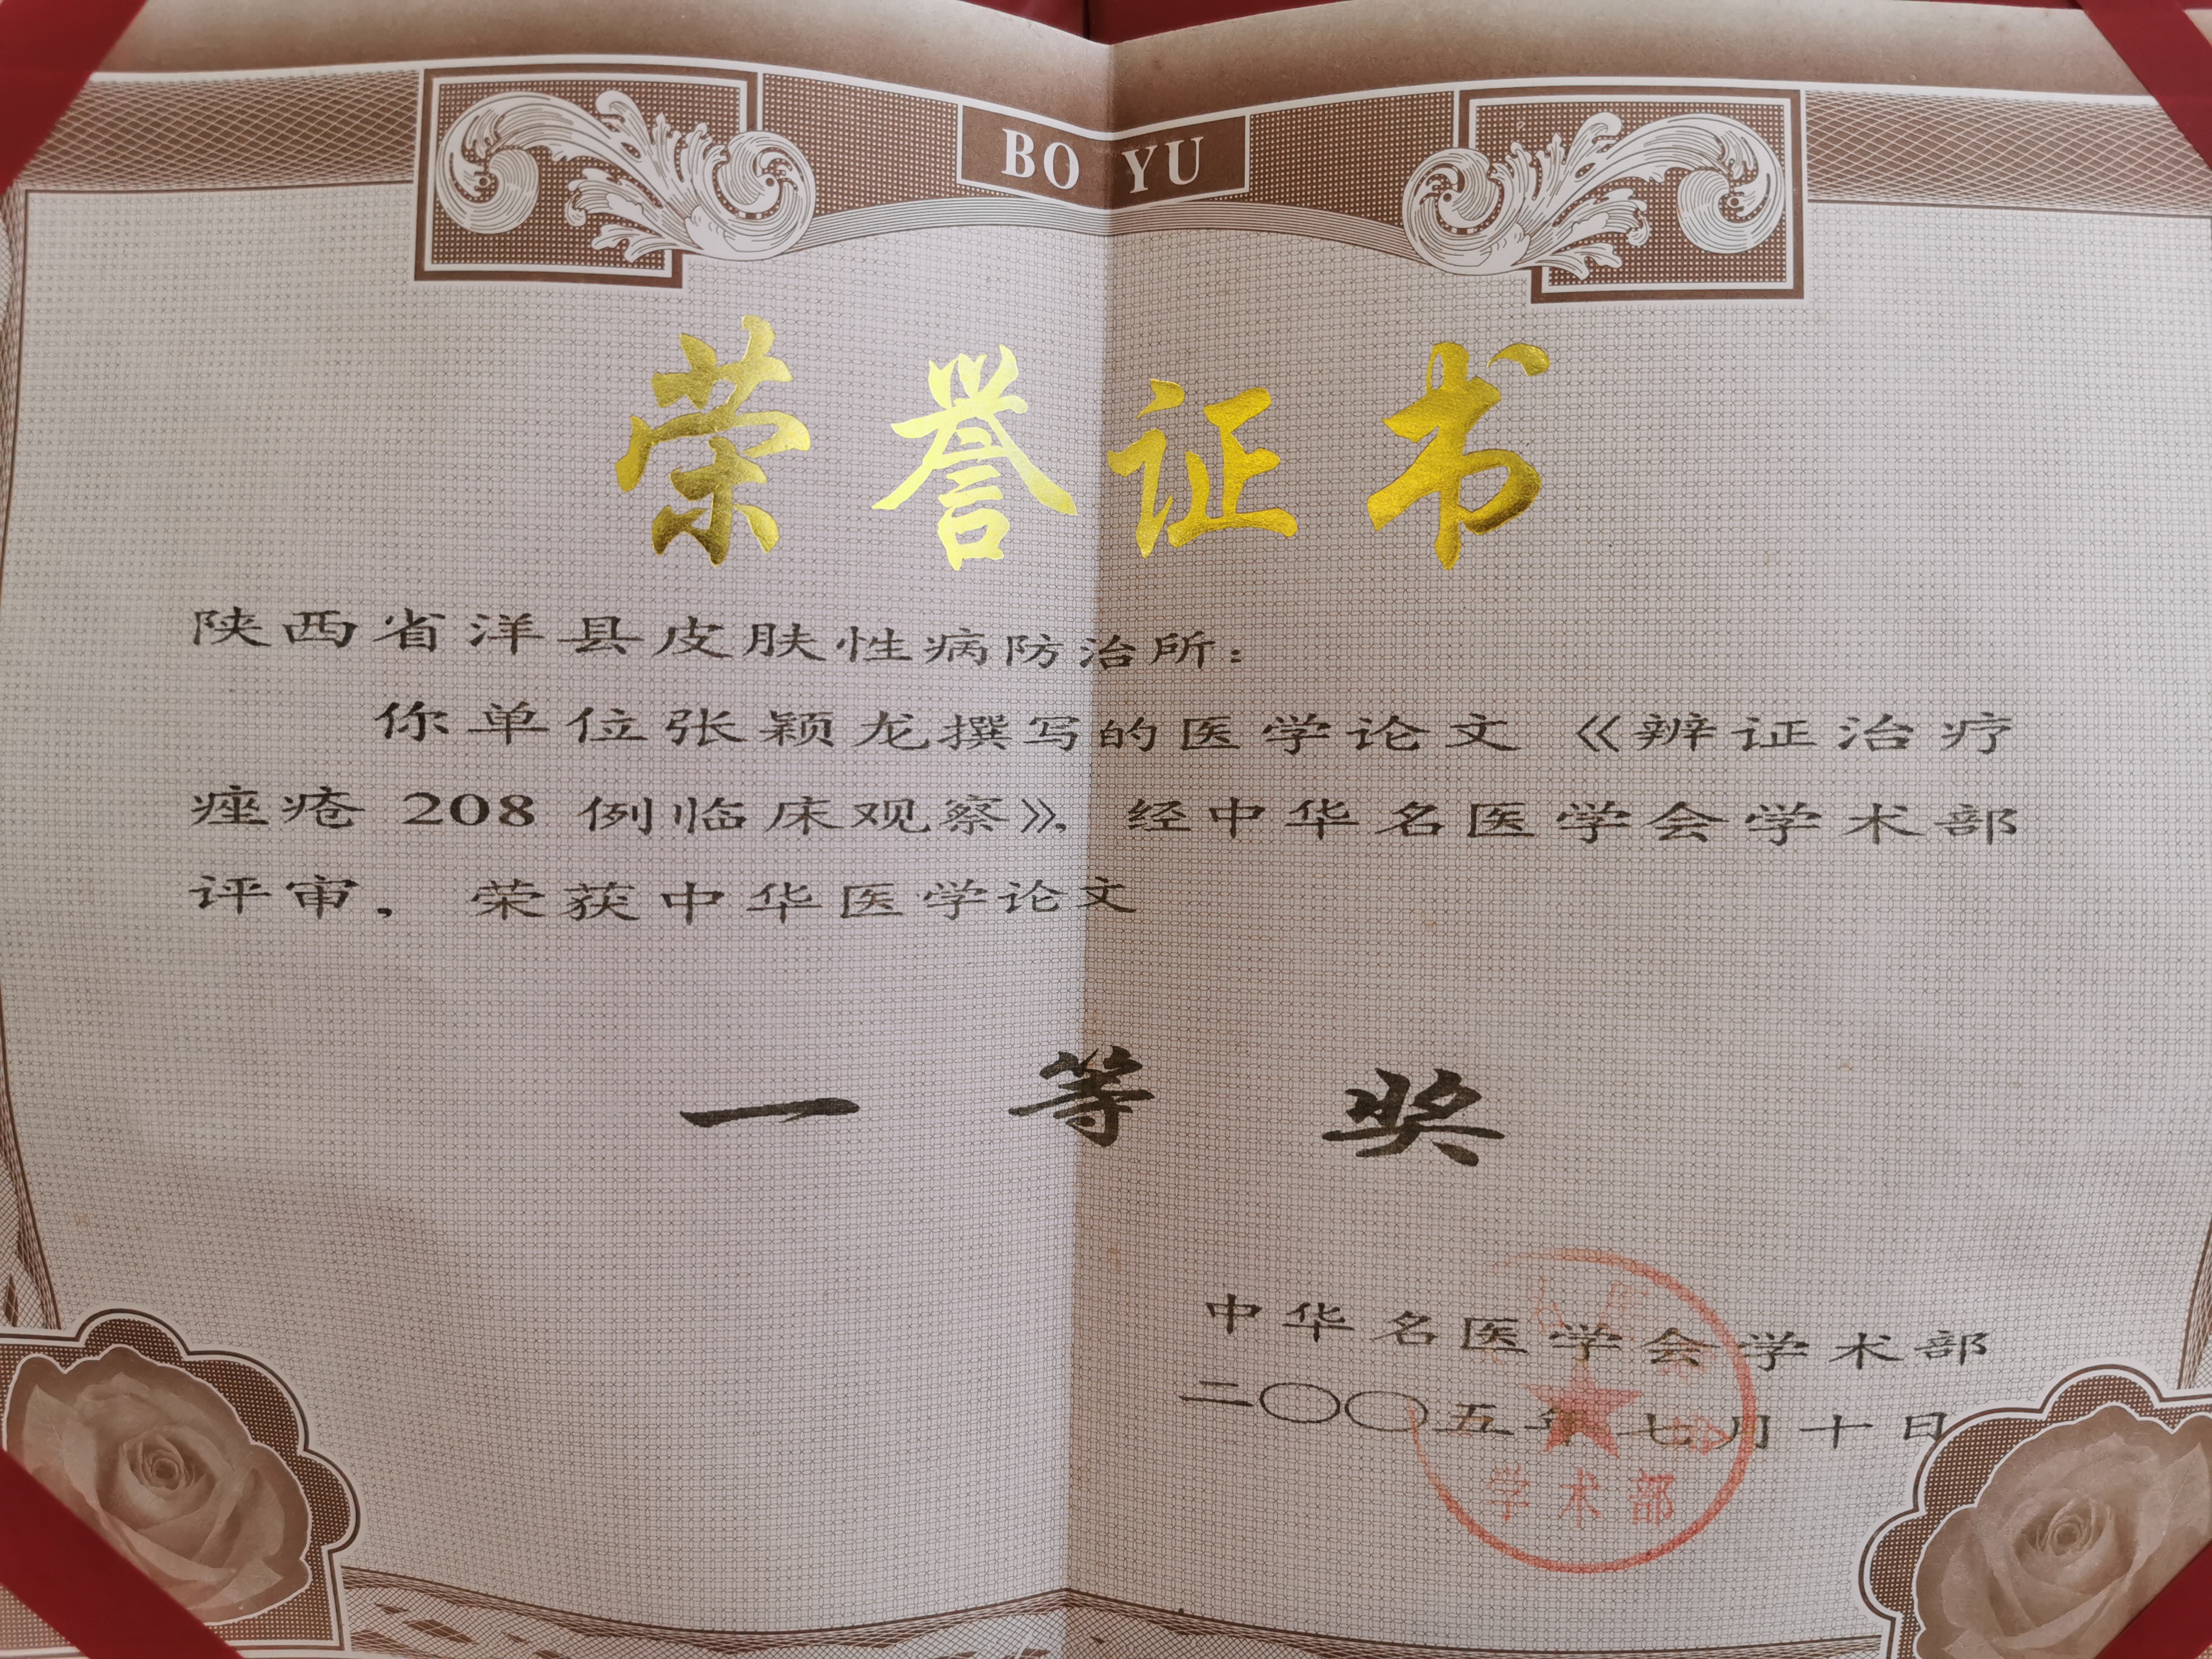 BO YU
荣誉证书
陕西省洋县皮肤性病防治所：
你单位张颖龙撰写的医学论文《辨证治疗
痤疮 208 例临床观察》，经中华名医学会学术部
评审，荣获中华医学论文
一等奖
中华名医学会学术部
二〇〇五年七月十日
学术部